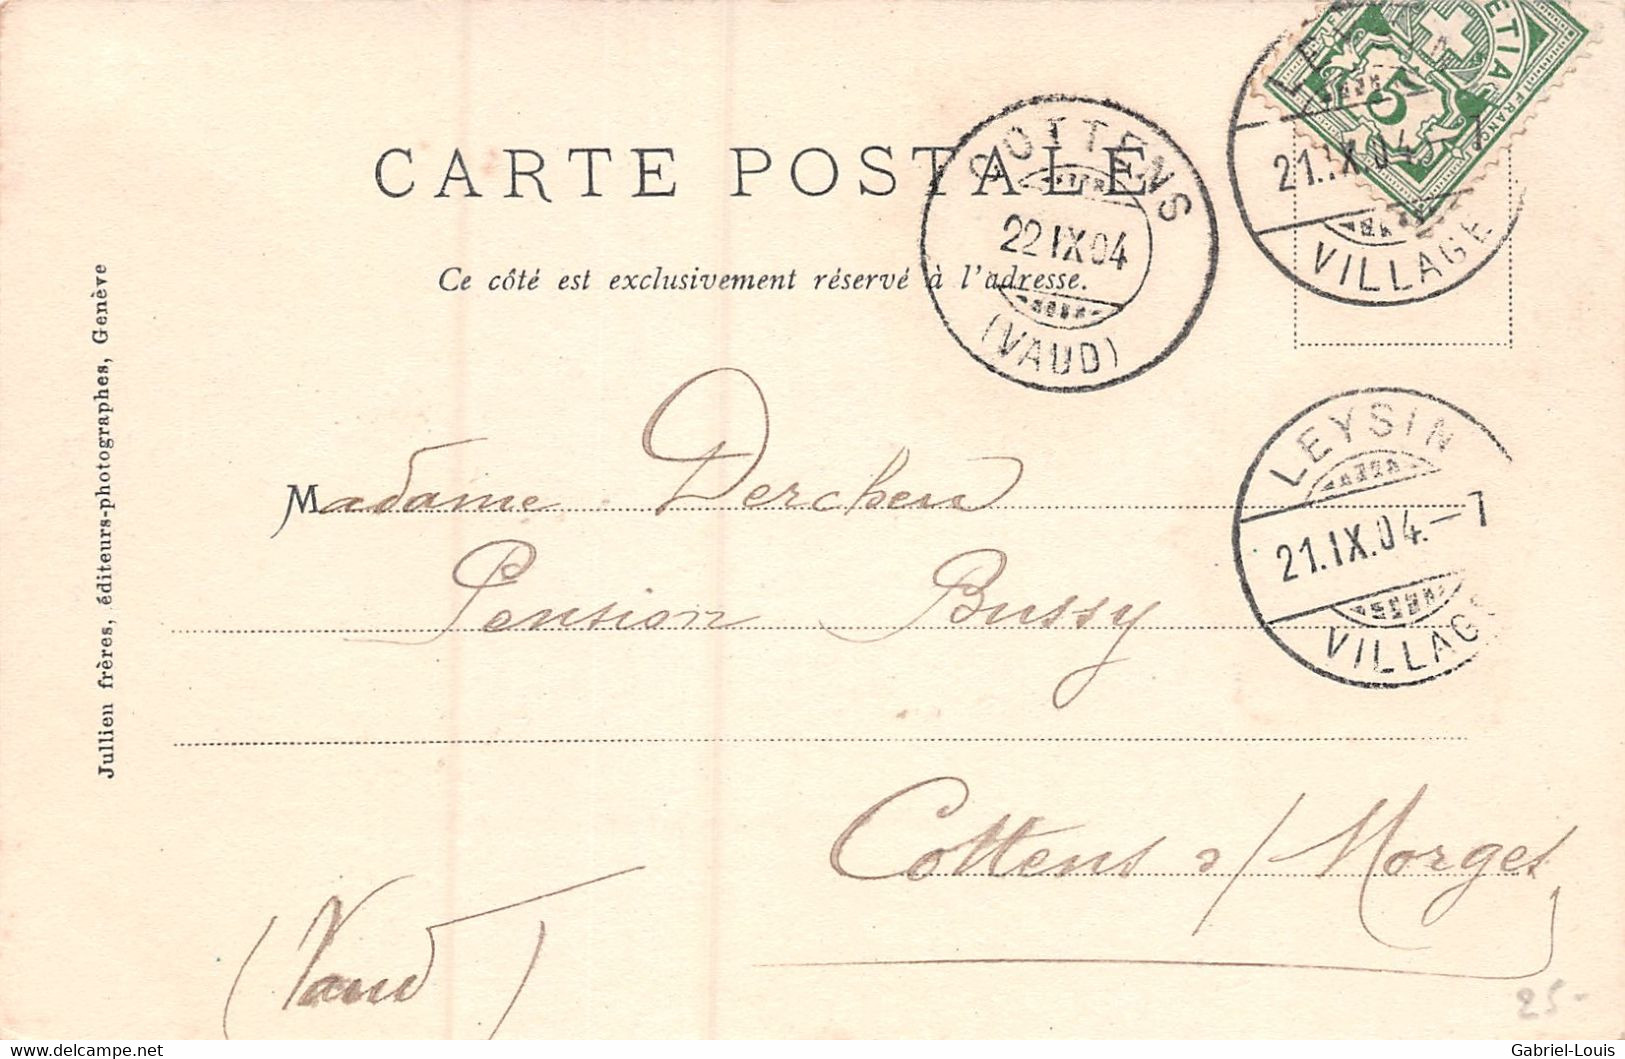 CARTE POSTALE
Ce côté est exclusivement réservé à l'adresse.
COTTENS
22 IX 04
(VAUD)
HELVETIA
FRANCO
5
21.IX.04.-7
VILLAGE
LEYSIN
21.IX.04.-7
VILLAGE
Madame
Pension Bussy
Cottens s/ Morges
(Vaud)
25-
Jullien frères, éditeurs-photographes, Genève
delcampe.net
Gabriel-Louis